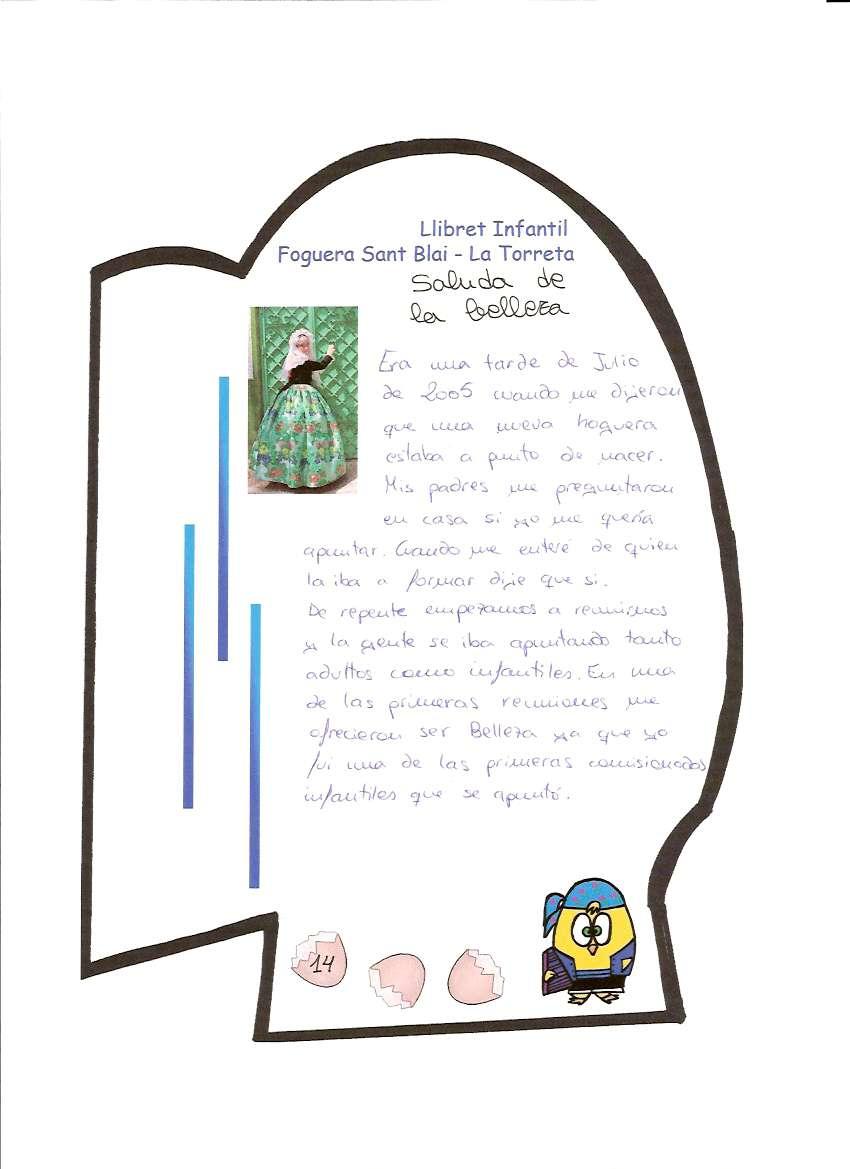 Llibret Infantil
Foguera Sant Blai - La Torreta
Saluda de
la belleza
Era una tarde de Julio
de 2005 cuando me dijeron
que una nueva hoguera
estaba a punto de nacer.
Mis padres me preguntaron
en casa si yo me quería
apuntar. Cuando me enteré de quien
la iba a formar dije que si.
De repente empezamos a reunirnos
y la gente se iba apuntando tanto
adultos como infantiles. En una
de las primeras reuniones me
ofrecieron ser Belleza ya que yo
fui una de las primeras comisionados
infantiles que se apuntó.
14